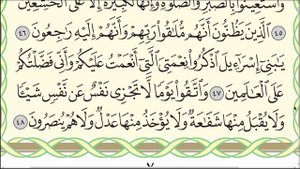 وَٱسْتَعِينُوا۟ بِٱلصَّبْرِ وَٱلصَّلَوٰةِ وَإِنَّهَا لَكَبِيرَةٌ إِلَّا عَلَى ٱلْخَـٰشِعِينَ
٤٥ ٱلَّذِينَ يَظُنُّونَ أَنَّهُم مُّلَـٰقُوا۟ رَبِّهِمْ وَأَنَّهُمْ إِلَيْهِ رَٰجِعُونَ ٤٦
يَـٰبَنِىٓ إِسْرَٰٓءِيلَ ٱذْكُرُوا۟ نِعْمَتِىَ ٱلَّتِىٓ أَنْعَمْتُ عَلَيْكُمْ وَأَنِّى فَضَّلْتُكُمْ
عَلَى ٱلْعَـٰلَمِينَ ٤٧ وَٱتَّقُوا۟ يَوْمًا لَّا تَجْزِى نَفْسٌ عَن نَّفْسٍ شَيْـًٔا
وَلَا يُقْبَلُ مِنْهَا شَفَـٰعَةٌ وَلَا يُؤْخَذُ مِنْهَا عَدْلٌ وَلَا هُمْ يُنصَرُونَ ٤٨
٧